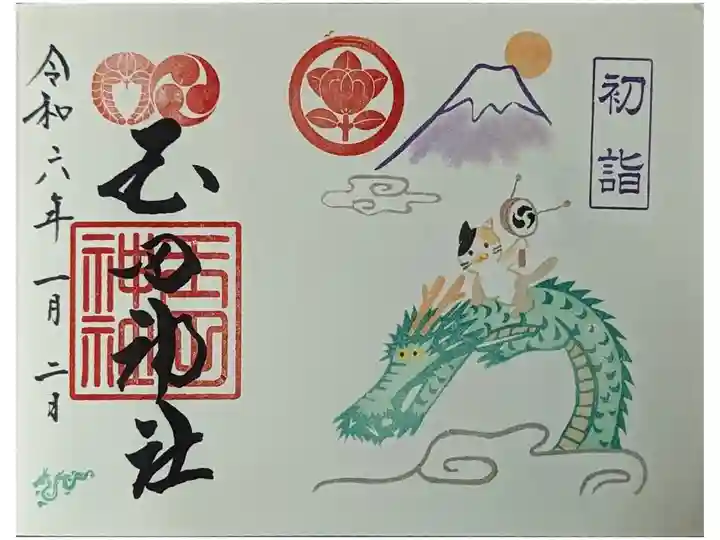 初詣
玉田神社
玉田
神社
令和六年一月二日